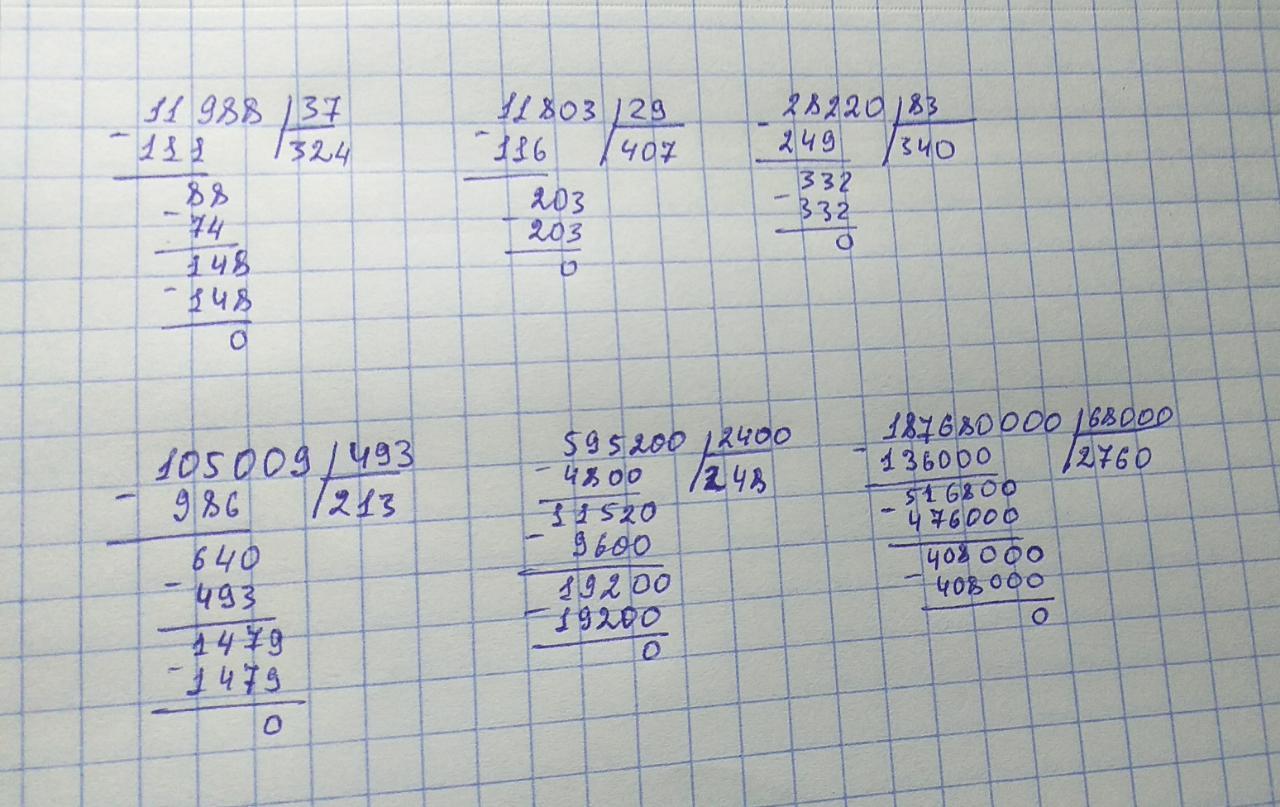 11988 37
- 111 324
88
- 74
148
- 148
0
11803 29
- 116 407
203
- 203
0
28220 83
- 249 340
332
- 332
0
105009 493
- 986 213
640
- 493
1479
- 1479
0
595200 2400
- 4800 248
11520
- 9600
19200
- 19200
0
187680000 68000
- 136000 2760
516800
- 476000
408000
- 408000
0